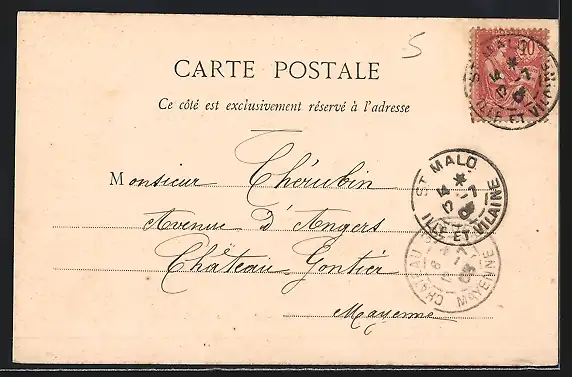 5
10
CARTE POSTALE
Ce côté est exclusivement réservé à l'adresse
Monsieur Chérubin
Avenue d'Angers
Château-Gontier
Mayenne
ST MALO
ILLE ET VILAINE
ST MALO
ILLE ET VILAINE
MAYENNE